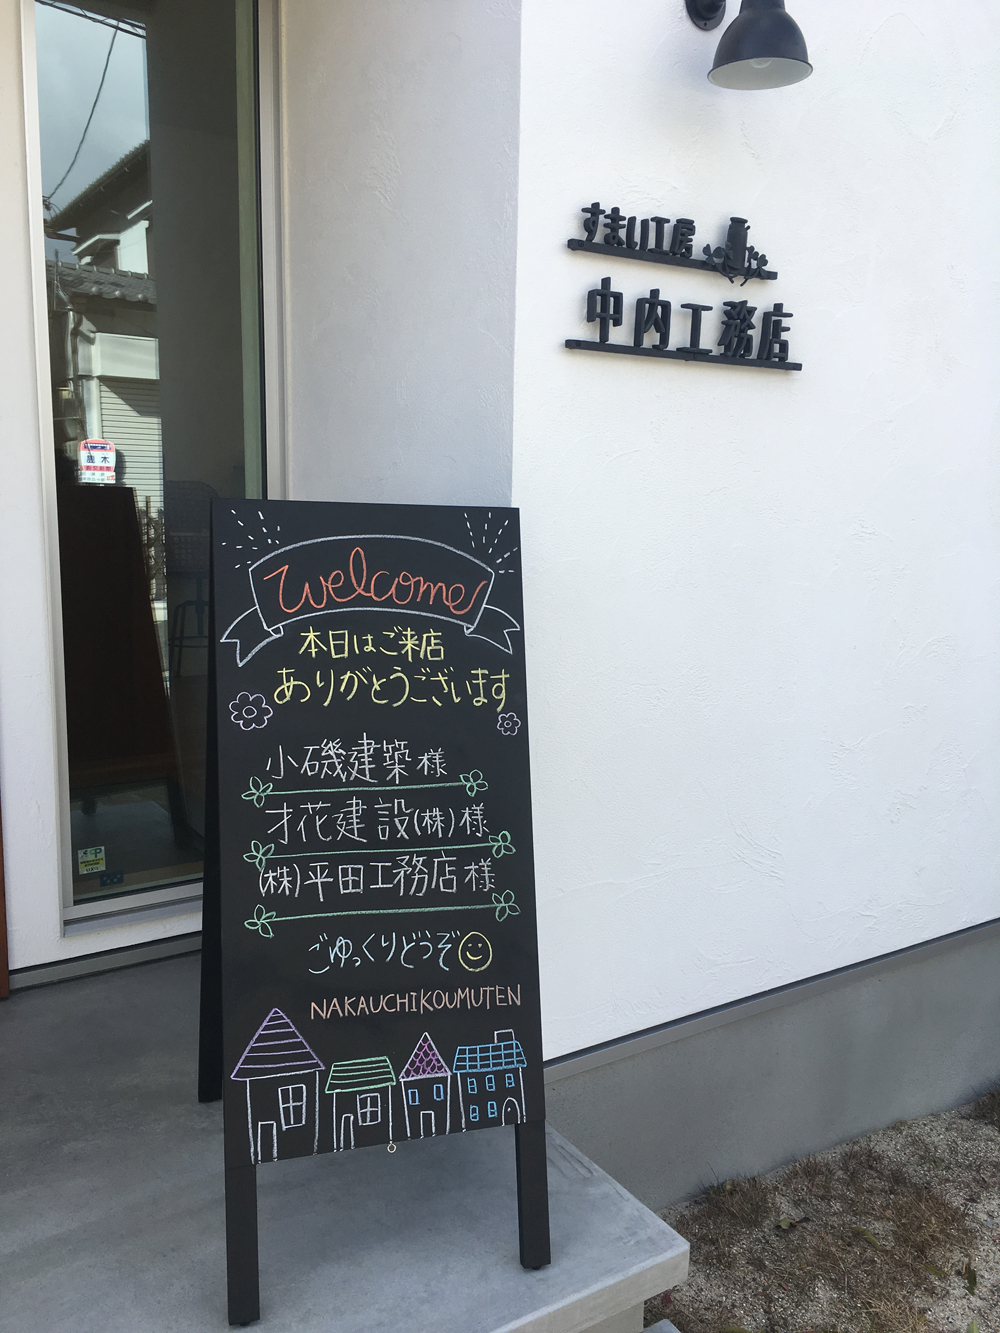 すまい工房
中内工務店
Welcome
本日はご来店
ありがとうございます
小磯建築様
才花建設(株)様
(株)平田工務店様
ごゆっくりどうぞ
NAKAUCHIKOUMUTEN